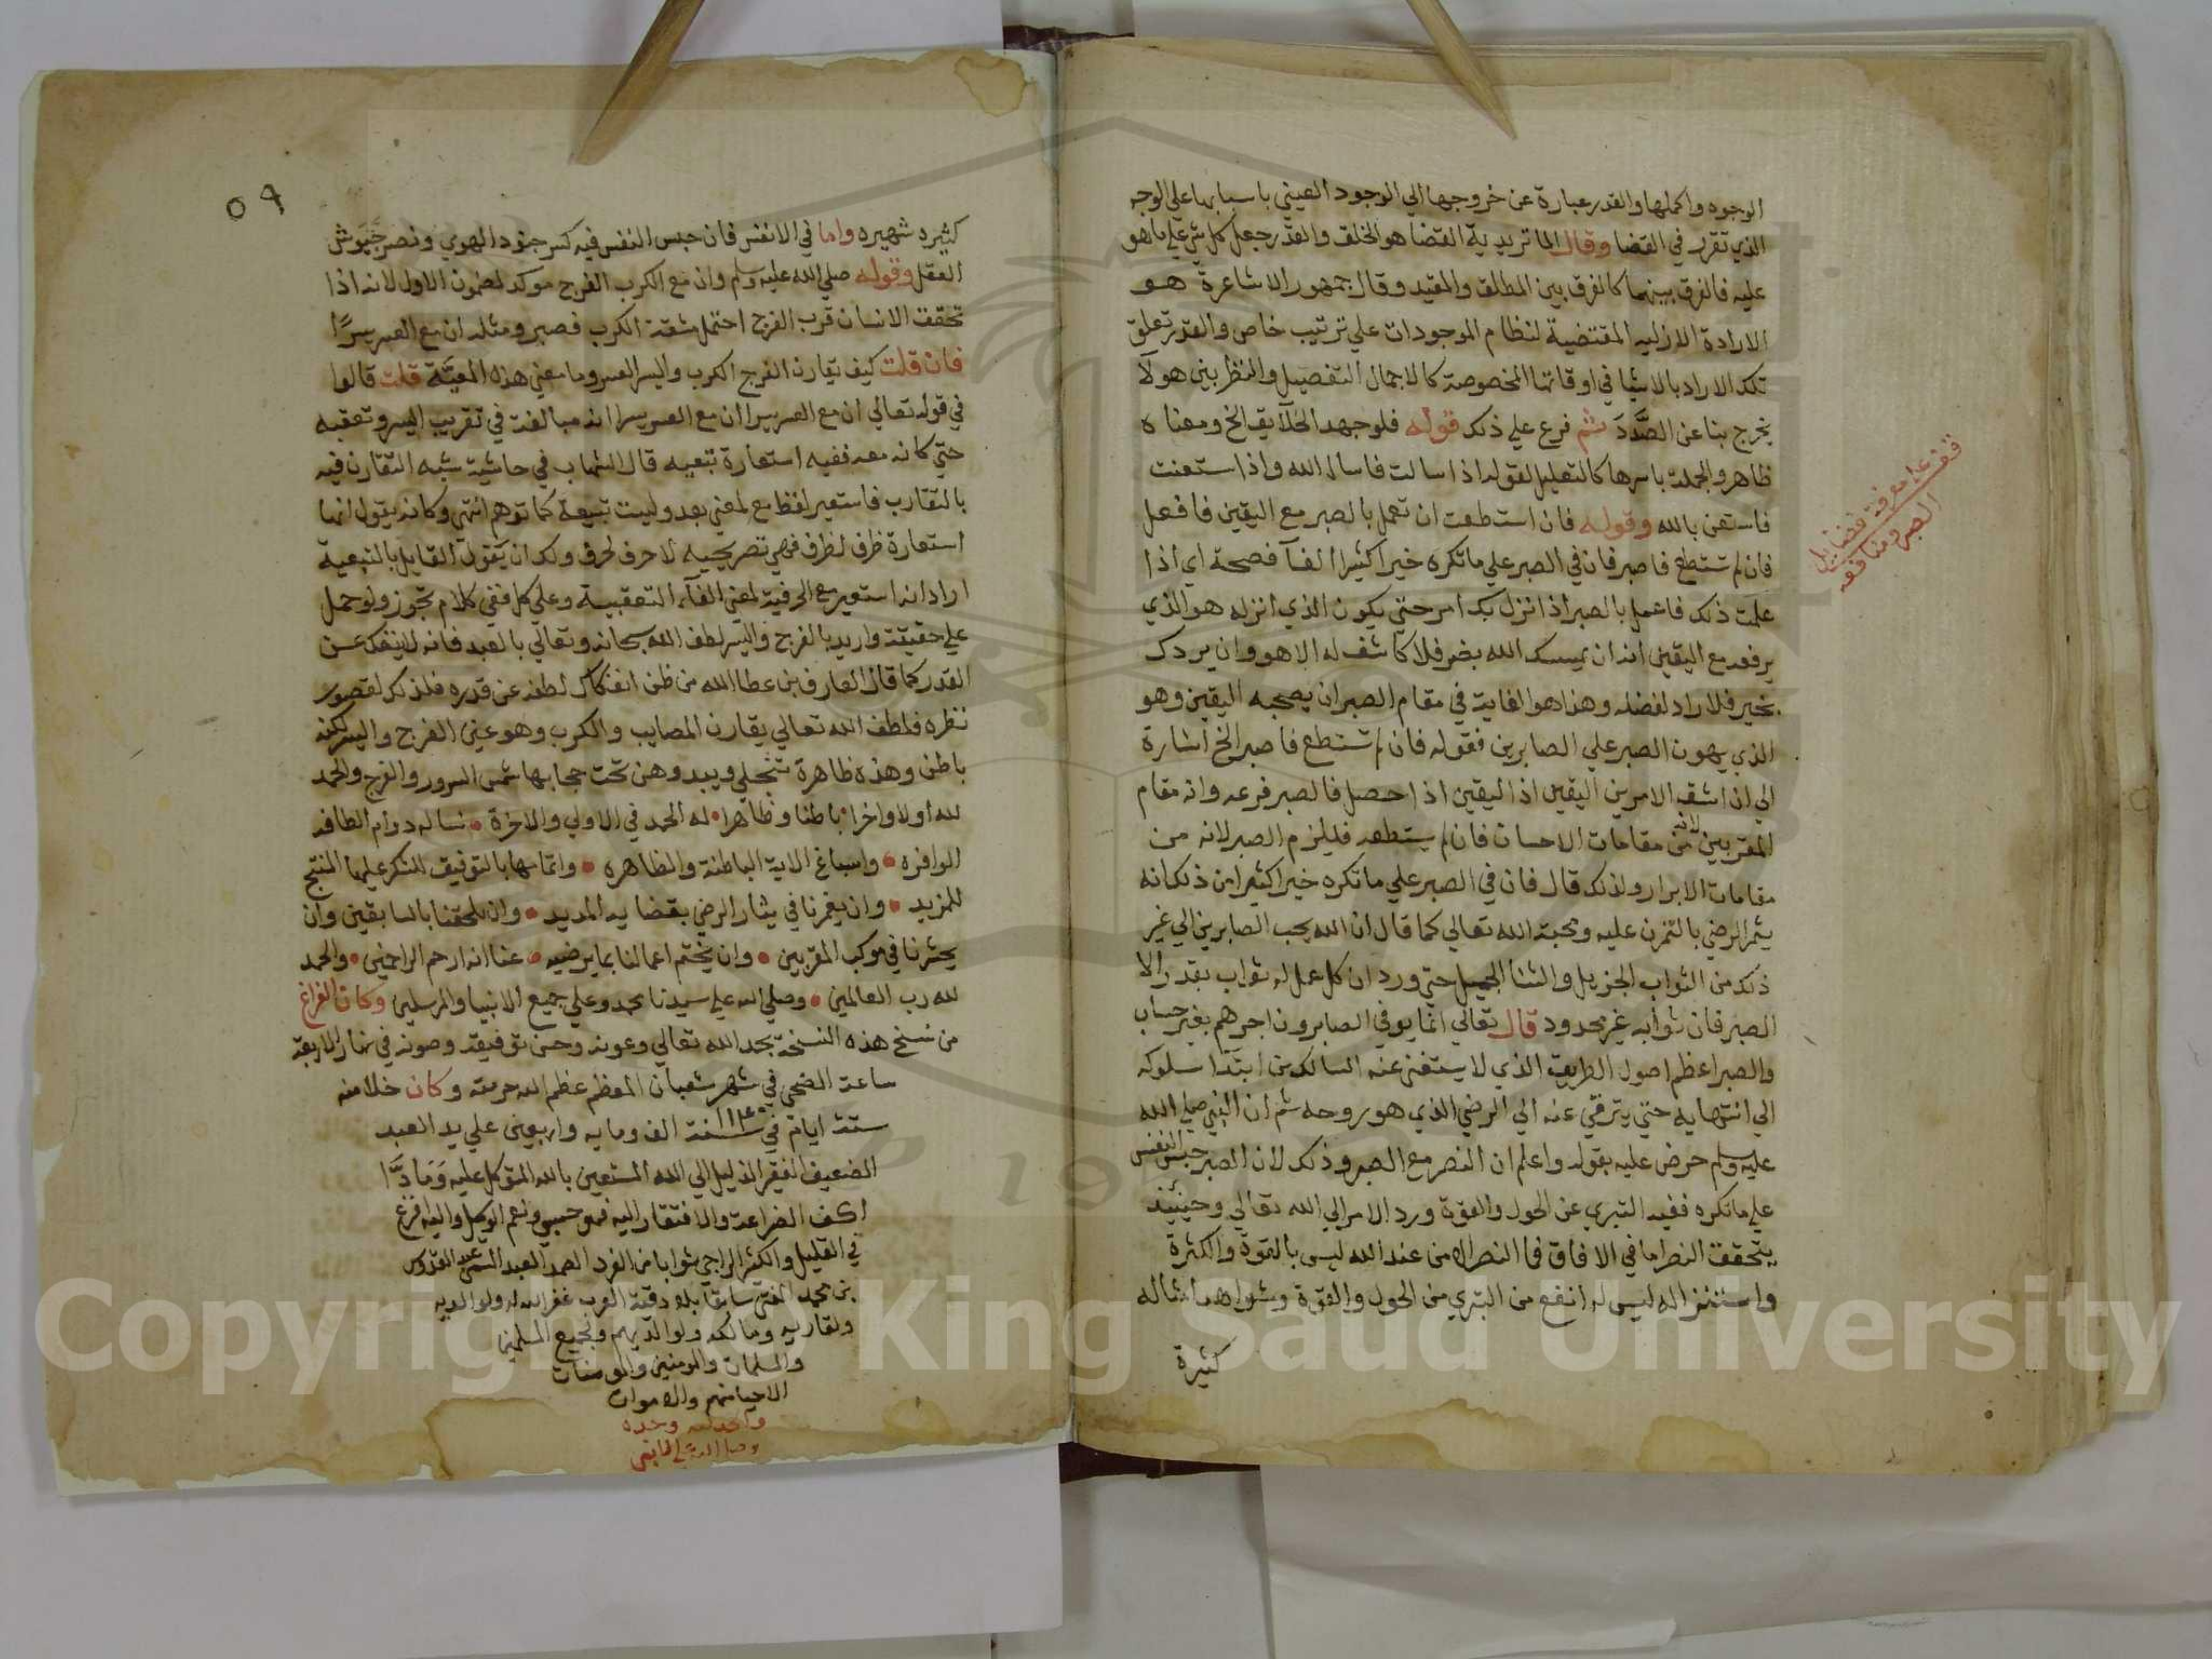 الوجوه واكملها والقدر عبارة عن خروجها الي الوجود العيني باسبابها علي الوجه
الذي تقرر في القضا وقال الماتريدية القضا هو الخلق والقدر جعل كل شي علي ما هو
عليه فالفرق بينهما كالفرق بين المطلق والمقيد وقال جمهور الاشاعرة هو
الارادة الازليه المقتضية لنظام الموجودات علي ترتيب خاص والقدر تعلق
تلك الاراد بالاشيا في اوقاتها المخصوصة كالاجمال التفصيل والنظر بين هولآ
يخرج بنا عن الصدد ثم فرع علي ذلك قوله فلو جهد الخلآيق الخ ومعناه
ظاهر والجملة باسرها كالتعليل لقوله اذا سالت فاسال الله واذا استعنت
فاستعن بالله وقوله فان استطعت ان تعمل بالصبر مع اليقين فافعل
فان لم تستطع فاصبر فان في الصبر علي ما تكره خيرا كثيرا الفآ فصحة اي اذا
علمت ذلك فاعمل بالصبر اذا نزل بك امر حتي يكون الذي انزله هو الذي
يرفعه مع اليقين انه ان يمسسك الله بضر فلا كاشف له الا هو وان يردك
بخير فلا راد لفضله وهذا هو الغاية في مقام الصبر ان يصحبه اليقين وهو
الذي يهون الصبر علي الصابرين فقوله فان لم تستطع فاصبر الخ اشارة
الي ان اشق الامرين اليقين اذ اليقين اذا حصل فالصبر فرعه وانه مقام
المقربين لانه من مقامات الاحسان فان لم يستطعه فليلزم الصبر لانه من
مقامات الابرار ولذلك قال فان في الصبر علي ما تكره خيرا كثيرا من ذلك انه
يثمر الرضي بالتمرن عليه ومحبة الله تعالي كما قال ان الله يحب الصابرين الي غير
ذلك من الثواب الجزيل والثنا الجميل حتي ورد ان كل عمل له ثواب بقدر الا
الصبر فان ثوابه غير محدود قال تعالي انما يوفي الصابرون اجرهم بغير حساب
والصبر اعظم اصول الطريق الذي لا يستغني عنه السالك من ابتدا سلوكه
الي انتهايه حتي يترقي عنه الي الرضي الذي هو روحه ثم ان النبي صلي الله
عليه وسلم حرض عليه بقوله واعلم ان النصر مع الصبر وذلك لان الصبر حبس النفس
علي ما تكره ففيه التبري عن الحول والقوة ورد الامر الي الله تعالي وحينيذ
يتحقق النصر اما في الافاق فما النصر الا من عند الله ليس بالقوة والكثرة
واستنزاله ليس له انفع من التبري من الحول والقوة وشواهد امثاله
كثيرة
قف علي معرفة فضايل
الصبر ومنافعه
٥٩
كثيره شهيره واما في الانفس فان حبس النفس فيه كسر جنود الهوي ونصر جيوش
العقل وقوله صلي الله عليه وسلم وان مع الكرب الفرج موكد لمضمون الاول لانه اذا
تحقق الانسان قرب الفرج احتمل مشقة الكرب فصبر ومثله ان مع العسر يسرًا
فان قلت كيف تقارن الفرج الكرب واليسر العسر وما معني هذه المعيَّة قلت قالوا
في قوله تعالي ان مع العسر يسرا ان مع العسر يسرا انه مبالغة في تقريب اليسر وتعقبه
حتي كانه معه ففيه استعارة تبعيه قال الشهاب في حاشيته شبه التقارن فيه
بالتقارب فاستعير لفظ مع لمعني بعد وليست تبعية كما توهم انتهي وكانه يقول انها
استعارة ظرف لظرف فهي تصريحيه لا حرف لحرف ولك ان تقول القايل بالتبعية
اراد انه استعير مع الحرفية لمعني الفآء التعقبية وعلي كل ففي كلام تجوز ولو حمل
علي حقيقته واريد بالفرج واليسر لطف الله سبحانه وتعالي بالعبد فانه لا ينفك عن
القدر كما قال العارف بن عطا الله من ظن انفكاك لطفه عن قدره فلذلك لقصور
نظره فلطف الله تعالي يقارن المصايب والكرب وهو عين الفرج واليسر لكنه
باطن وهذه ظاهرة تنجلي ويبدو من تحت حجابها شمس السرور والفرج والحمد
لله اولا واخرا باطنا وظاهرا له الحمد في الاولي والاخرة نساله دوام الطافه
الوافره واسباغ الايه الباطنة والظاهره واتمامها بالتوفيق للشكر عليها المنتج
للمزيد وان يغمرنا في بثار الرضي بقضايه المديد وان يلحقنا بالسابقين وان
يحشرنا في موكب المقربين وان يختم اعمالنا بما يرضيه عنا انه ارحم الراحمين والحمد
لله رب العالمين وصلي الله علي سيدنا محمد وعلي جميع الانبيا والمرسلين وكان الفراغ
من نسخ هذه النسخة بحمد الله تعالي وعونه وحسن توفيقه وصونه في نهار الاربعة
ساعة الضحي في شهر شعبان المعظم عظم الله حرمته وكان خلا منه
ستة ايام في سنة ١١٤٠ الف ومايه واربعين علي يد العبد
الضعيف الفقير الذليل الي الله المستعين بالله المتوكل عليه ومادًّا
اكف الضراعة والافتقار اليه فهو حسبي ونعم الوكيل واليه افزع
في القليل والكثير الراجي ثوابا من الفرد الصمد العبد المسمي عبد القدوس
بن محمد المفتي سابقا ببلد دقنة العرب غفر الله له ولوالديه
ولقاريه ومالكه ولوالديهم ولجميع المسلمين
والمسلمات والمومنين والمومنات
الاحيا منهم والاموات
والحمد لله وحده
Copyright © King Saud University
1957